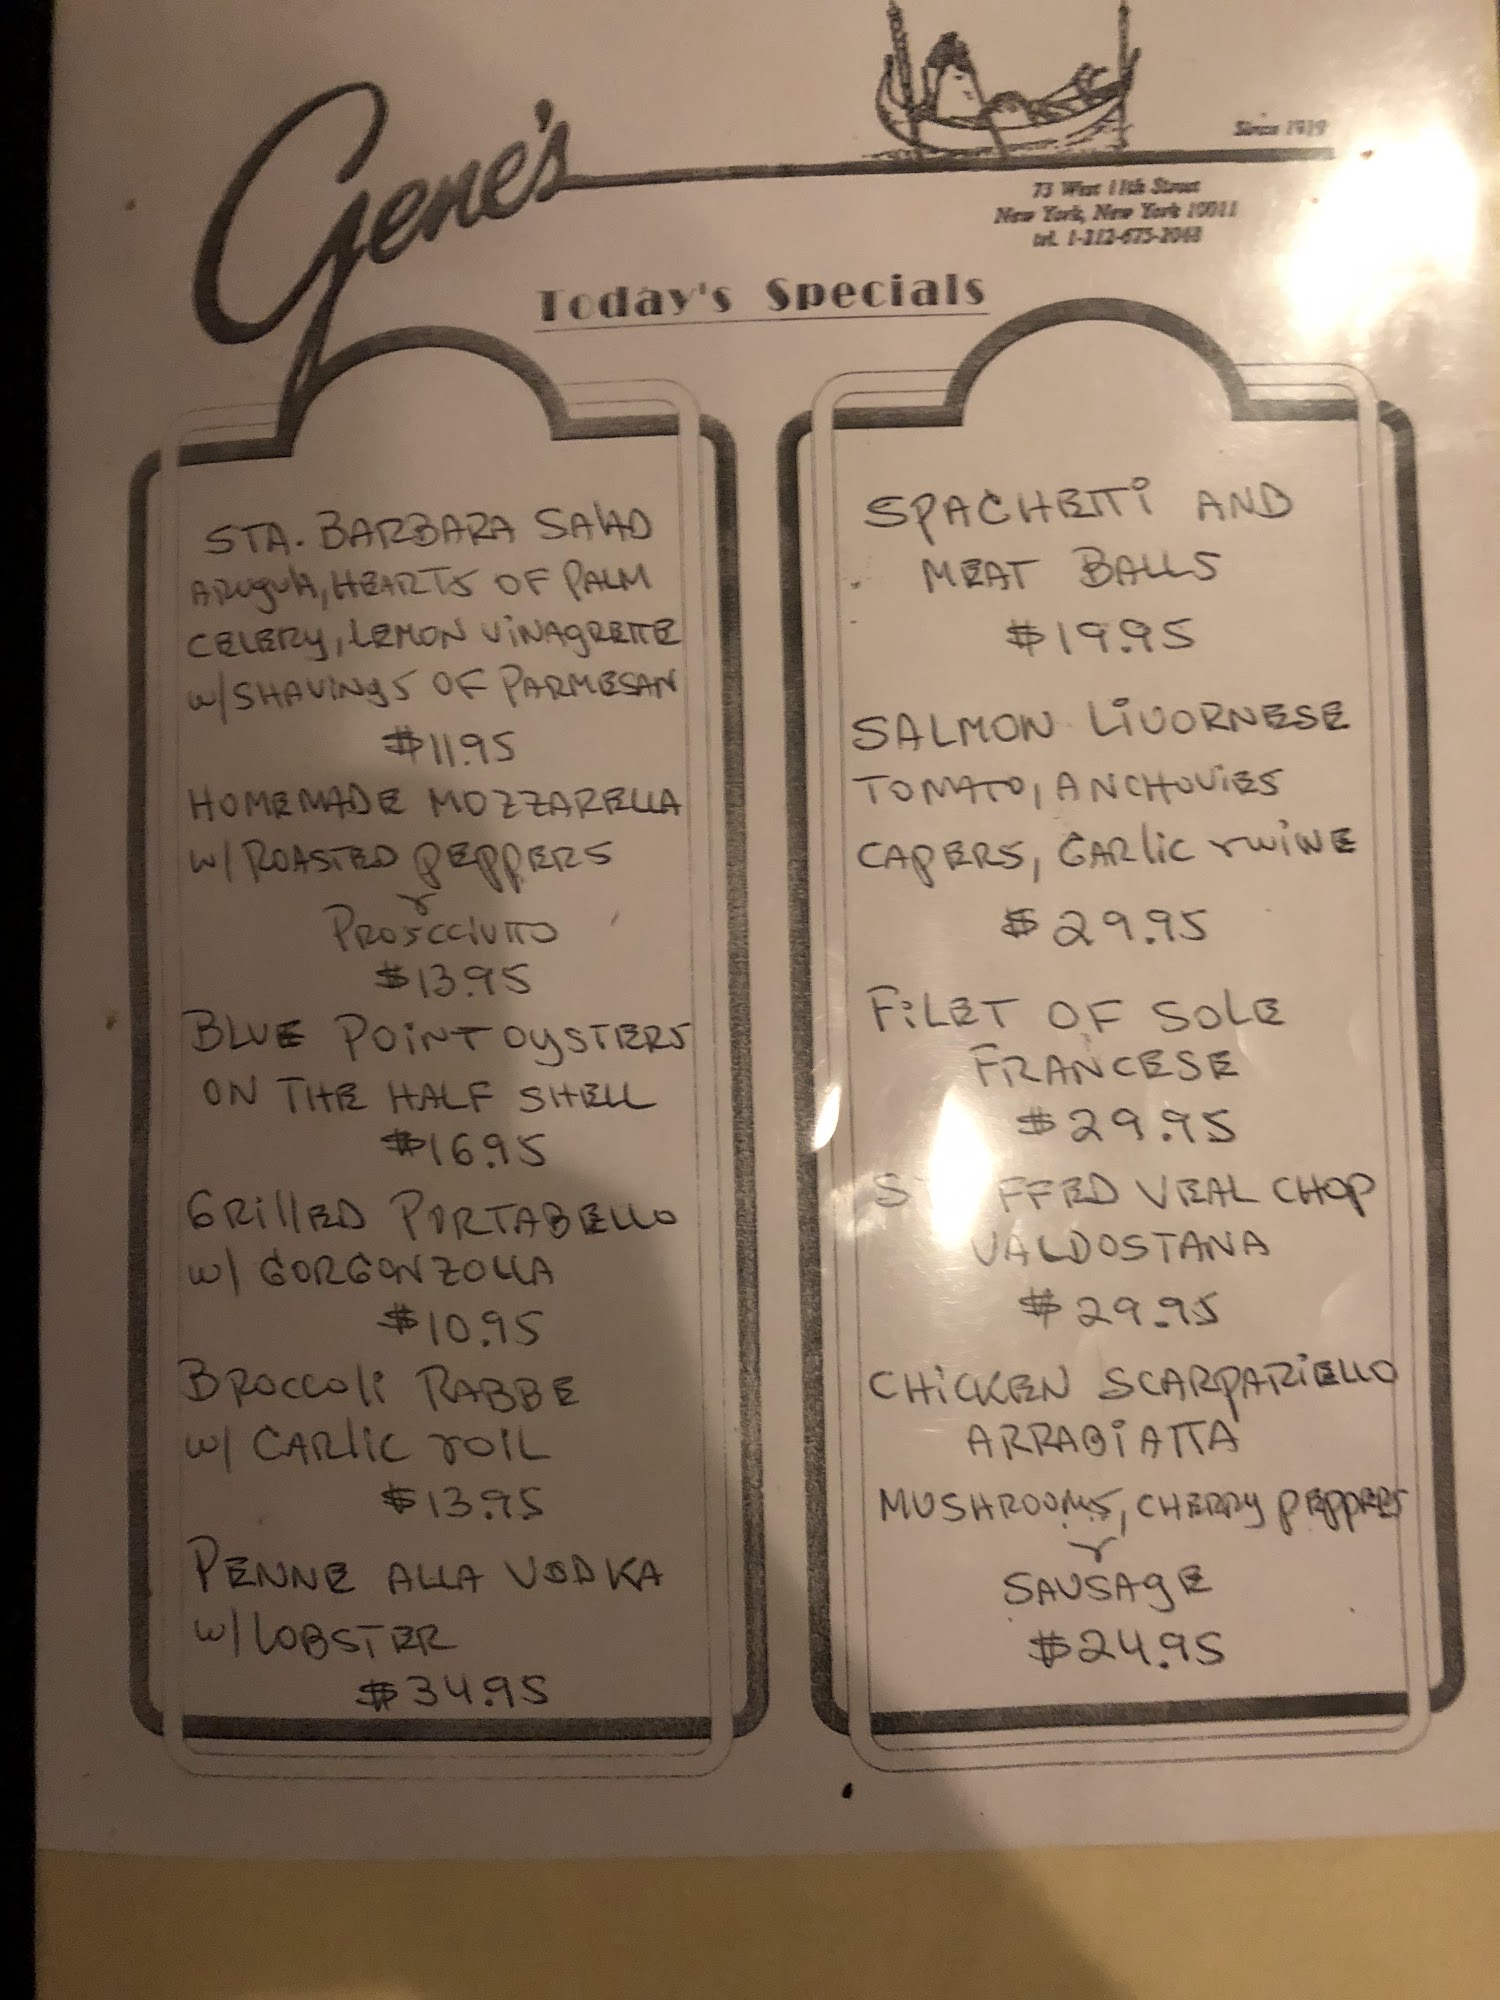 Gene's
Since 1919
73 West 11th Street
New York, New York 10011
tel. 1-212-675-2048
Today's Specials
STA. BARBARA SALAD
ARUGULA, HEARTS OF PALM
CELERY, LEMON VINAGRETTE
W/SHAVINGS OF PARMESAN
$11.95
HOMEMADE MOZZARELLA
W/ ROASTED PEPPERS
&
PROSCCIUTTO
$13.95
BLUE POINT OYSTERS
ON THE HALF SHELL
$16.95
GRILLED PORTABELLO
W/ GORGONZOLLA
$10.95
BROCCOLI RABBE
W/ GARLIC & OIL
$13.95
PENNE ALLA VODKA
W/ LOBSTER
$34.95
SPAGHETTI AND
MEAT BALLS
$19.95
SALMON LIVORNESE
TOMATO, ANCHOVIES
CAPERS, GARLIC & WINE
$29.95
FILET OF SOLE
FRANCESE
$29.95
VEAL CHOP
VALDOSTANA
$29.95
CHICKEN SCARPARIELLO
ARRABIATTA
MUSHROOMS, CHERRY PEPPERS
&
SAUSAGE
$24.95